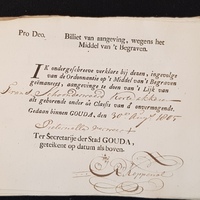 Pro Deo. Billiet van aangeving, wegens het
Middel van 't Begraven.
IK ondergeschreve verklare bij dezen, ingevolge
van de Ordonnantie op 't Middel van 't Begraven
geëmaneert, aangeving te doen van 't Lijk van
als gehorende onder de Classis van d'onvermogende.
Gedaan binnen GOUDA, den 30 Aug 1805
Ter Secretarije der Stad GOUDA,
geteikent op datum als boven.